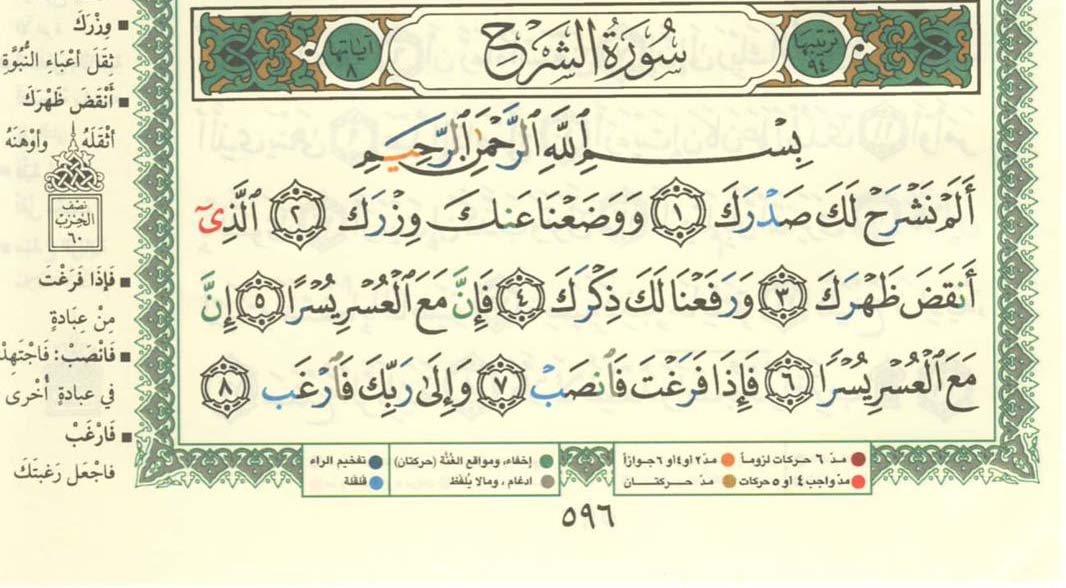 ترتيبها ٩٤
سُورَةُ الشَّرْحِ
آياتها ٨
بِسْمِ ٱللَّهِ ٱلرَّحْمَٰنِ ٱلرَّحِيمِ
أَلَمْ نَشْرَحْ لَكَ صَدْرَكَ ١ وَوَضَعْنَا عَنكَ وِزْرَكَ ٢ ٱلَّذِىٓ
أَنقَضَ ظَهْرَكَ ٣ وَرَفَعْنَا لَكَ ذِكْرَكَ ٤ فَإِنَّ مَعَ ٱلْعُسْرِ يُسْرًا ٥ إِنَّ
مَعَ ٱلْعُسْرِ يُسْرًا ٦ فَإِذَا فَرَغْتَ فَٱنصَبْ ٧ وَإِلَىٰ رَبِّكَ فَٱرْغَب ٨
وِزْرَكَ
ثِقَلَ أعْبَاءِ النُّبُوَّةِ
أَنْقَضَ ظَهْرَكَ
أثْقَلَهُ وأوْهَنَهُ
نصف
الحزب
٦٠
فَإِذَا فَرَغْتَ
مِنْ عِبَادةٍ
فَانْصَبْ: فَاجْتَهِدْ
في عبادةٍ أُخْرى
فَارْغَبْ
فاجْعَل رَغبتَكَ
مدّ ٦ حركات لزوماً
مدّ ٢ او ٤ او ٦ جوازاً
إخفاء، ومواقع الغُنَّة (حركتان)
تفخيم الراء
مدّ واجب ٤ او ٥ حركات
مدّ حركتان
ادغام، ومالا يُلفَظ
قلقلة
٥٩٦